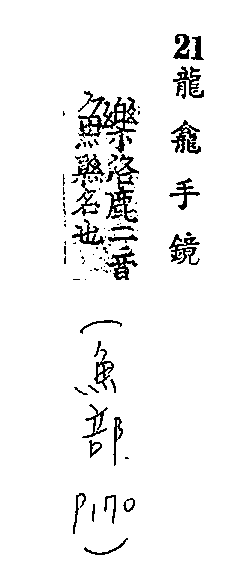 21 龍龕手鏡
鱳
洛鹿二音
縣名也
(魚部 P170)